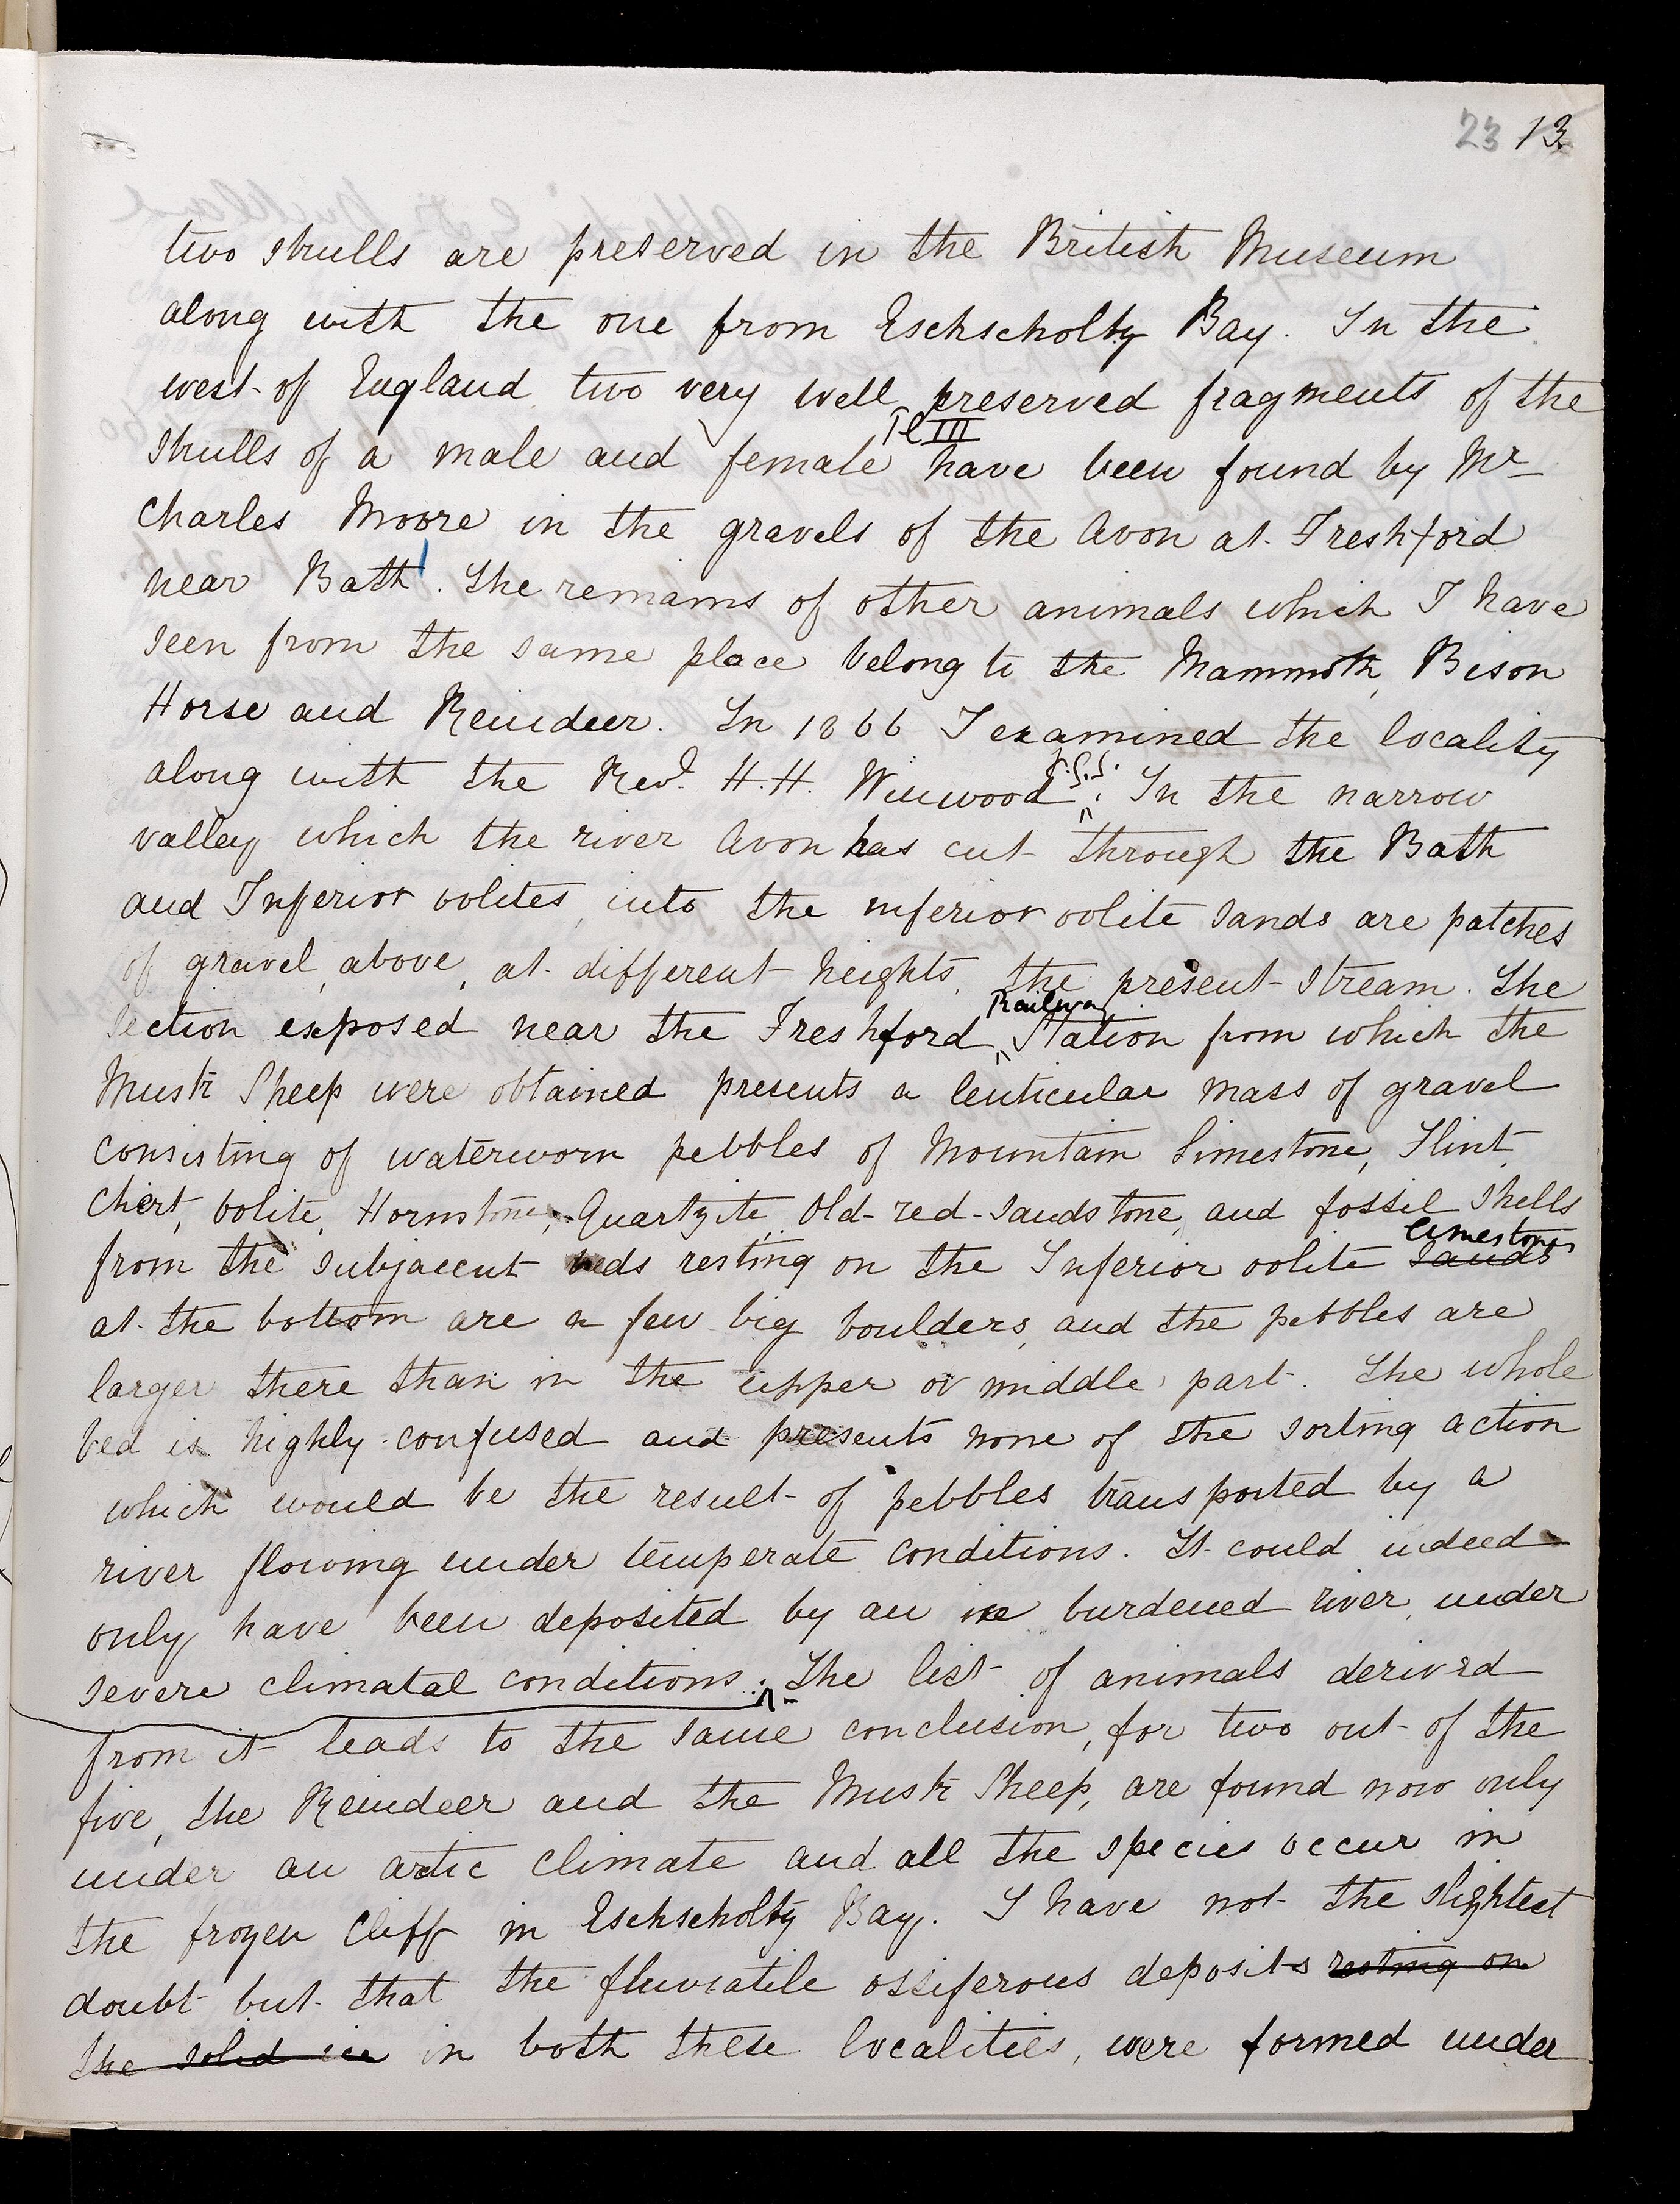 23 13.
two skulls are preserved in the British Museum
along with the one from Eschscholtz Bay. In the
west of England two very well preserved fragments of the
Pl III
skulls of a male and female have been found by Mr
Charles Moore in the gravels of the Avon at Freshford
near Bath. The remains of other animals which I have
seen from the same place belong to the Mammoth, Bison
Horse and Reindeer. In 1866 I examined the locality
F.G.S.
along with the Revd. H.H. Winwood. In the narrow
valley which the river Avon has cut through the Bath
and Inferior oolites, into the inferior oolite sands are patches
of gravel, above, at different heights, the present stream. The
Railway
section exposed near the Freshford Station from which the
Musk Sheep were obtained presents a lenticular mass of gravel
consisting of waterworn pebbles of Mountain Limestone, Flint,
Chert, oolite, Hornstone, Quartzite, Old-red-sandstone, and fossil shells
limestones
from the subjacent beds resting on the Inferior oolite sands
at the bottom are a few big boulders, and the pebbles are
larger there than in the upper or middle part. The whole
bed is highly confused and presents none of the sorting action
which would be the result of pebbles transported by a
river flowing under temperate conditions. It could indeed
only have been deposited by an ice burdened river, under
severe climatal conditions. The list of animals derived
from it leads to the same conclusion, for two out of the
five, the Reindeer and the Musk Sheep, are found now only
under an artic climate and all the species occur in
the frozen cliff in Eschscholtz Bay. I have not the slightest
doubt but that the fluviatile ossiferous deposits resting on
the solid ice in both these localities, were formed under